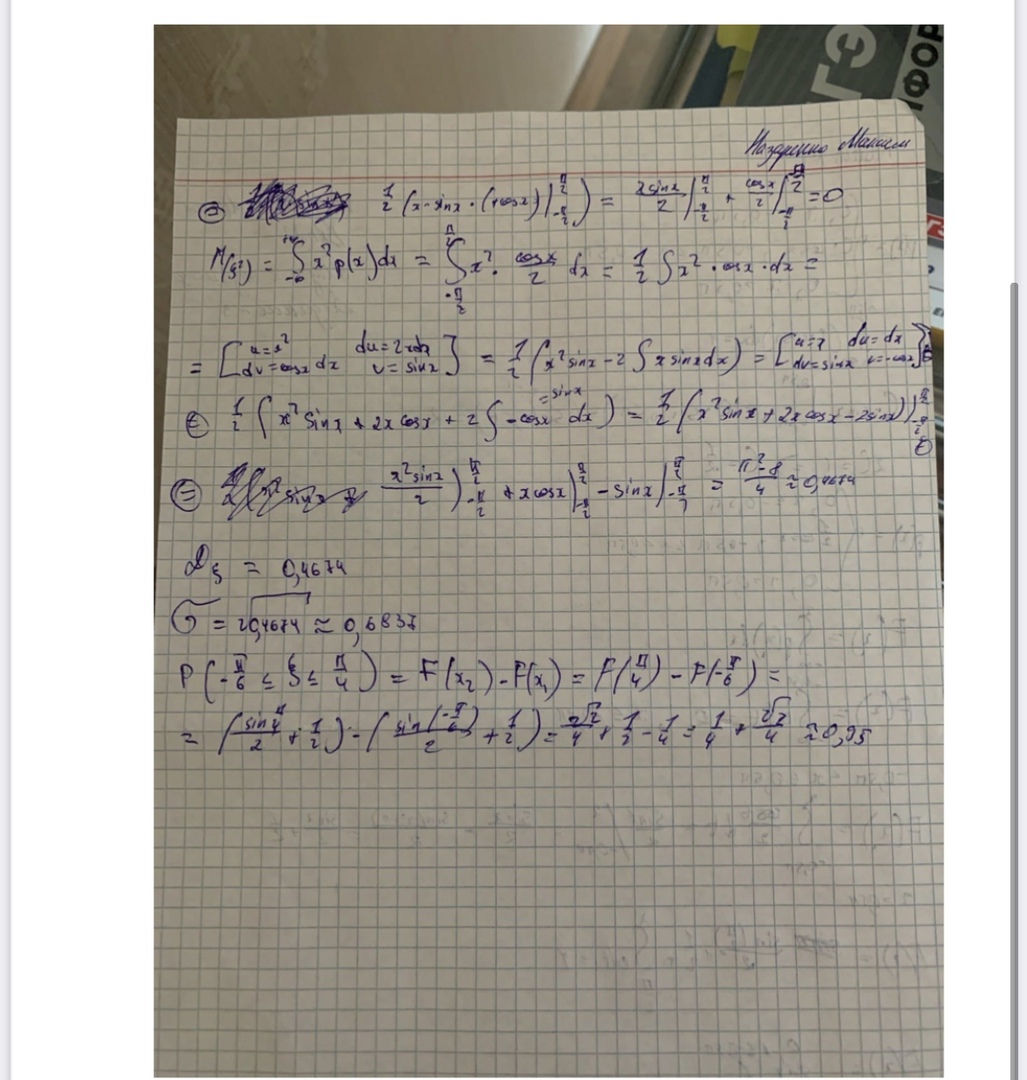 ГЭ
ИФОР
Назаренко Максим
⊜ 1/2 (x·sinx·(+cosx)|_{-π/2}^{π/2}) = xsinx/2 |_{-π/2}^{π/2} + cosx/2 |_{-π/2}^{π/2} = 0
M(ξ²) = ∫_{-∞}^{+∞} x² p(x)dx = ∫_{-π/2}^{π/2} x² · cosx/2 dx = 1/2 ∫ x² · cosx · dx =
= [u=x² du=2xdx dv=cosx dx v=sinx] = 1/2 (x² sinx - 2 ∫ x sinx dx) = [u=x du=dx dv=sinx v=-cosx] ⊜
=sinx
⊜ 1/2 (x² sinx + 2x cosx + 2 ∫ -cosx dx) = 1/2 (x² sinx + 2x cosx - 2sinx)|_{-π/2}^{π/2} ⊜
⊜ x² sinx/2 |_{-π/2}^{π/2} + x cosx |_{-π/2}^{π/2} - sinx |_{-π/2}^{π/2} = π²-8/4 ≈ 0,4674
D_ξ = 0,4674
σ = √0,4674 ≈ 0,6837
P(-π/6 ≤ ξ ≤ π/4) = F(x₂) - F(x₁) = F(π/4) - F(-π/6) =
= (sin π/4 /2 + 1/2) - (sin(-π/6)/2 + 1/2) = 2√2/4 + 1/2 - 1/4 = 1/4 + 2√2/4 ≈ 0,95